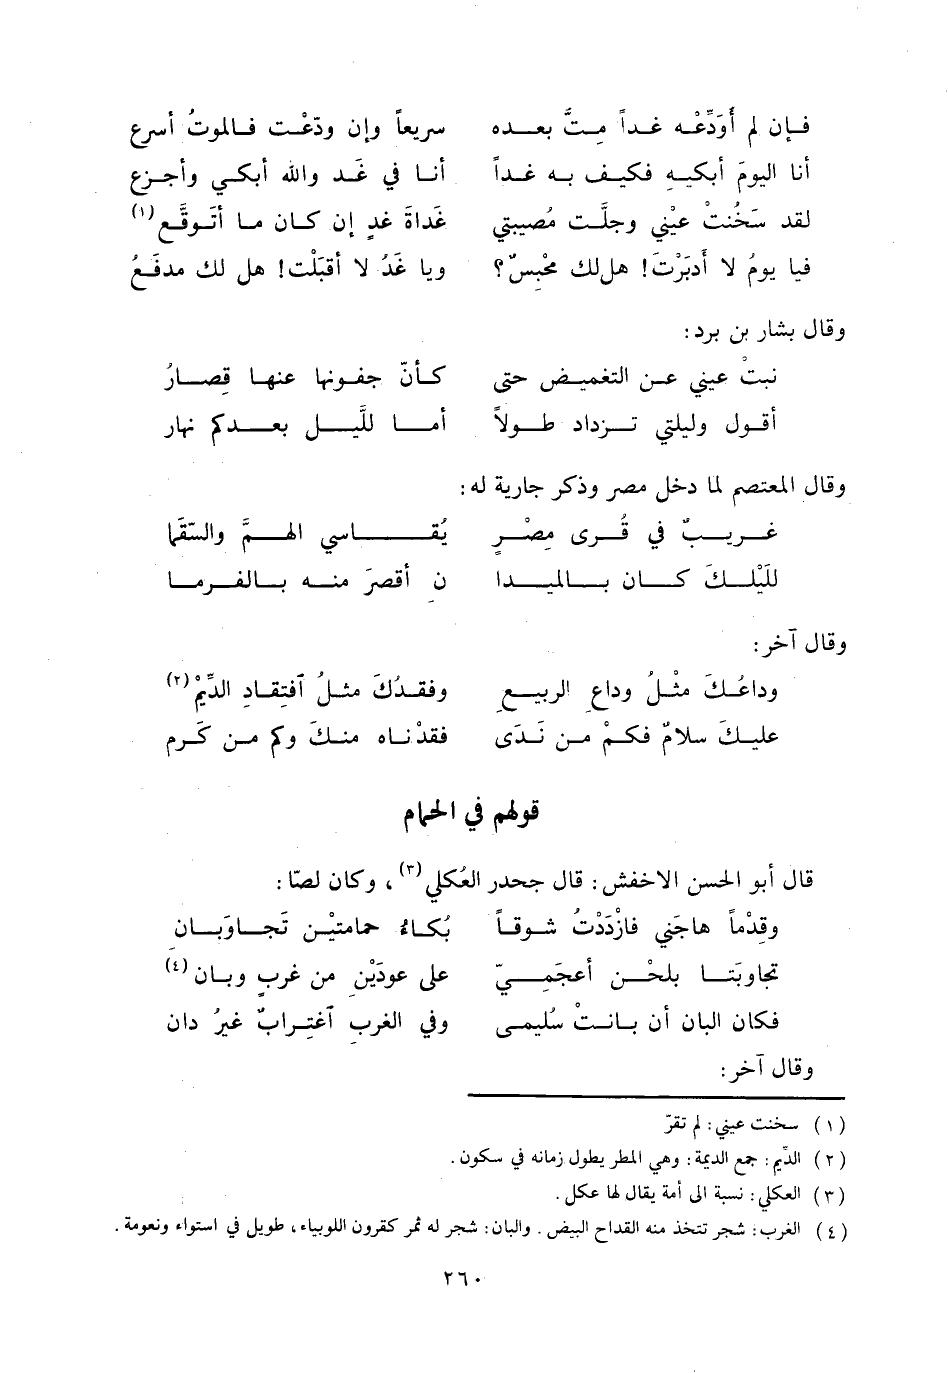 فإن لم أُوَدِّعْه غداً مِتُّ بعده سريعاً وإن ودّعْت فالموتُ أسرع
أنا اليومَ أبكيه فكيف به غداً أنا في غَد والله أبكي وأجزع
لقد سَخُنتْ عيْني وجلَّت مُصيبتي غَداةَ غدٍ إن كان ما أتَوقَّع (١)
فيا يومُ لا أدبَرْتَ! هل لك محْبِسٌ؟ ويا غَدُ لا أقبَلْت! هل لك مدفَعُ
وقال بشار بن برد:
نبتْ عيني عن التغميض حتى كأنّ جفونها عنها قِصارُ
أقول وليلتي تزداد طولاً أما للَّيل بعدكم نهار
وقال المعتصم لما دخل مصر وذكر جارية له:
غريبٌ في قُرى مِصْرٍ يُقاسي الهمَّ والسَّقَما
لَلَيْلكَ كان بالميدا ن أقصرَ منه بالفِرما
وقال آخر:
وداعُكَ مثْلُ وداعِ الربيعِ وفقدُكَ مثلُ ٱفتِقادِ الدِّيَمْ (٢)
عليكَ سلامٌ فكمْ من نَدَى فقدْناه منكَ وكم من كَرم
قولهم في الحمام
قال أبو الحسن الاخفش: قال جحدر العُكلي (٣)، وكان لصًا:
وقِدْماً هاجَني فازْدَدْتُ شوقاً بُكاءُ حمامتيْن تَجاوَبانِ
تجاوبَتا بلحْن أعجَمِيّ على عودَيْنِ من غربٍ وبان (٤)
فكان البان أن بانتْ سُليمى وفي الغربِ ٱغتِرابٌ غيرُ دان
وقال آخر:
(١) سخنت عيني: لم تقرّ
(٢) الدِّيم: جمع الديمة: وهي المطر يطول زمانه في سكون.
(٣) العكلي: نسبة الى أمة يقال لها عكل.
(٤) الغرب: شجر تتخذ منه القداح البيض. والبان: شجر له ثمر كقرون اللوبياء، طويل في استواء ونعومة.
٢٦٠